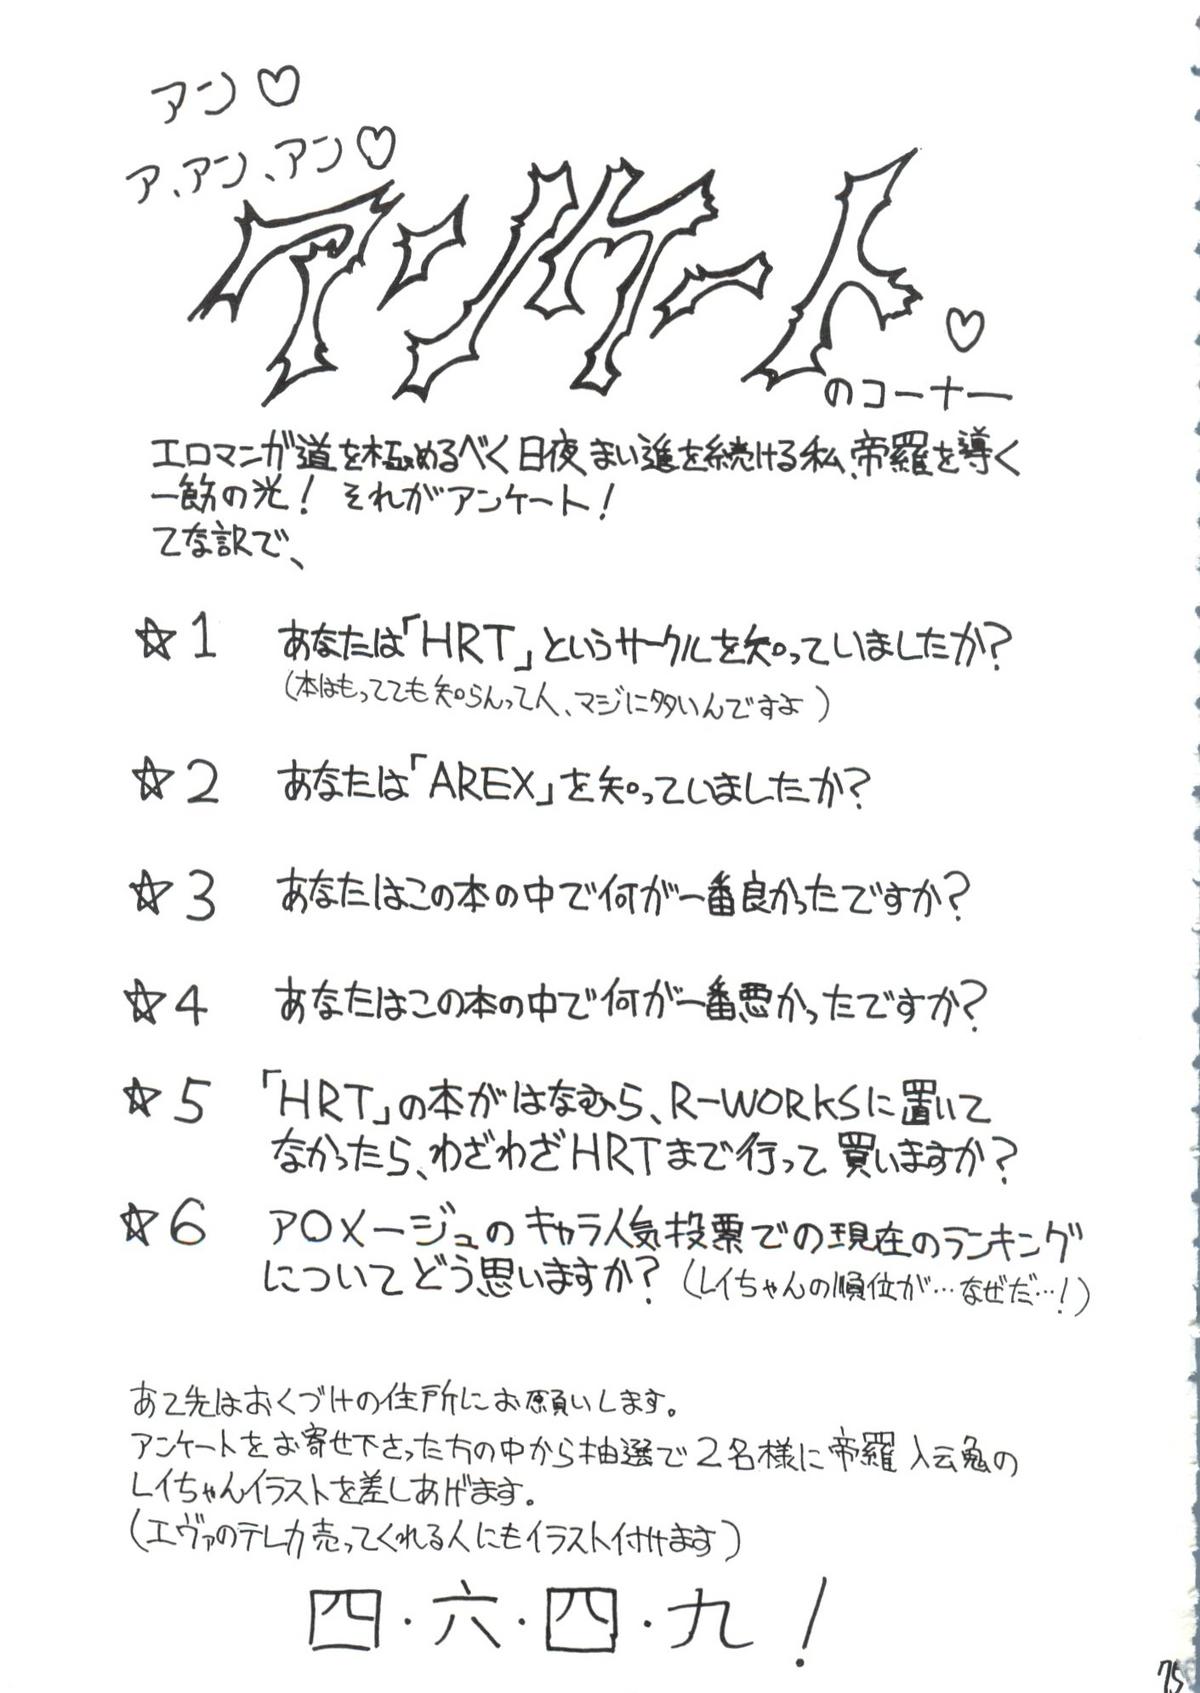 アン♡
ア、アン、アン♡
アンケート♡
のコーナー
エロマンガ道を極めるべく日夜まい進を続ける私、帝羅を導く
一筋の光! それがアンケート!
てな訳で、
☆1 あなたは「HRT」というサークルを知っていましたか?
(本はもってても知らんって人、マジに多いんですよ)
☆2 あなたは「AREX」を知っていましたか?
☆3 あなたはこの本の中で何が一番良かったですか?
☆4 あなたはこの本の中で何が一番悪かったですか?
☆5 「HRT」の本がはなむら、R-WORKSに置いて
なかったら、わざわざHRTまで行って買いますか?
☆6 アOメージュのキャラ人気投票での現在のランキング
についてどう思いますか? (レイちゃんの順位が…なぜだ…!)
あて先はおくづけの住所にお願いします。
アンケートをお寄せ下さった方の中から抽選で2名様に帝羅入云魂の
レイちゃんイラストを差しあげます。
(エヴァのテレカ売ってくれる人にもイラスト付けます)
四・六・四・九!
75